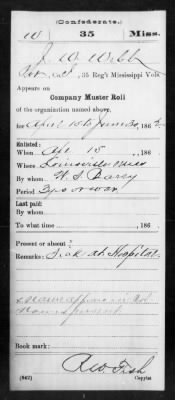 (Confederate.)
W 35 Miss.
J. W. Webb
, 35 Reg't Mississippi Vols.
Appears on
Company Muster Roll
of the organization named above,
for April 15 to June 30, 186
Enlisted:
When Apr 15, 186
Where Louisville Miss
By whom W. S. Barry
Period 3 yrs or war
Last paid:
By whom
To what time , 186
Present or absent?
Remarks: Sick at Hospital
Book mark:
R W. Fish
(642) Copyist.